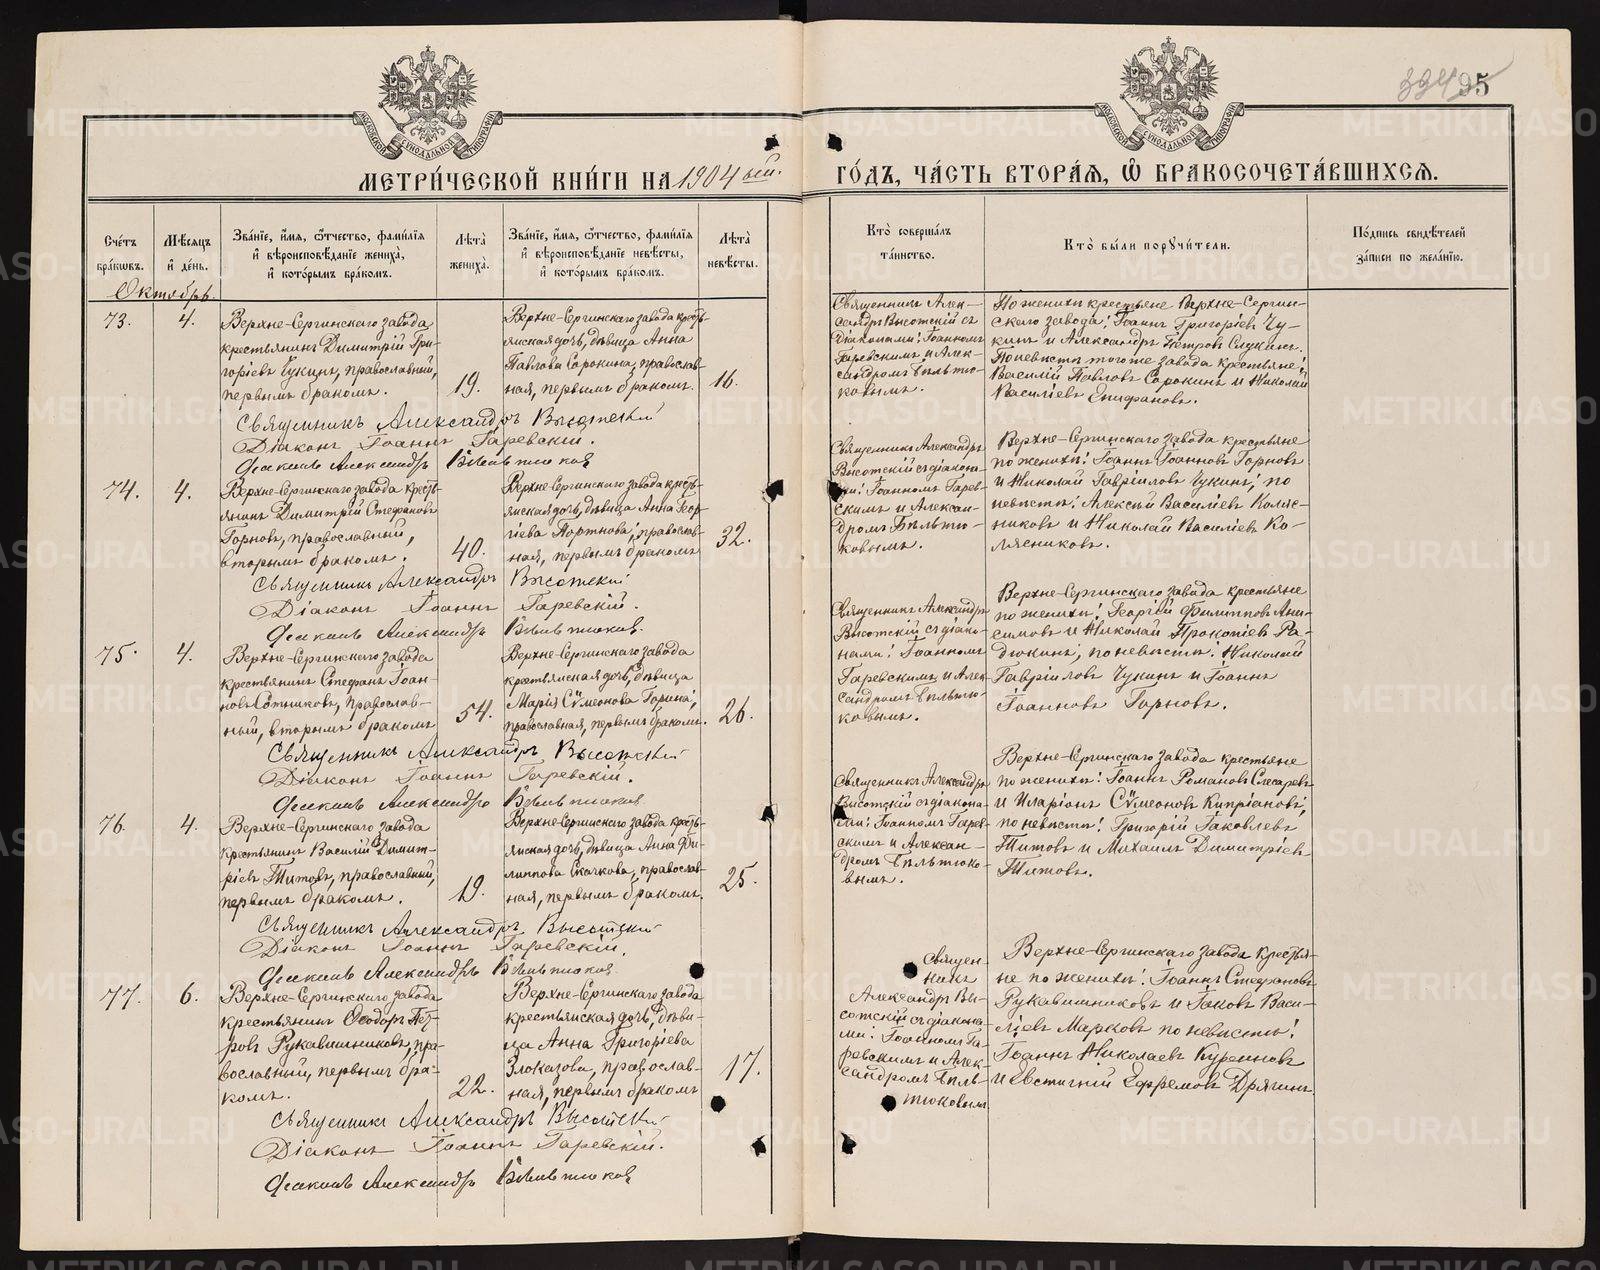 334 95
МЕТРИ́ЧЕСКОЙ КНИ́ГИ НА 1904 ый. ГО́ДЪ, ЧА́СТЬ ВТОРА́Я, Ѿ БРАКОСОЧЕТА́ВШИХСЯ.
Сче́тъ бра́ковъ.
Мѣ́сяцъ и҆ де́нь.
Зва́нїе, и҆́мя, ѻ҆́тчество, фами́лїя и҆ вѣроисповѣ́данїе жениха̀, и҆ кото́рымъ бра́комъ.
Лѣта̀ жениха̀.
Зва́нїе, и҆́мя, ѻ҆́тчество, фами́лїя и҆ вѣроисповѣ́данїе невѣ́сты, и҆ кото́рымъ бра́комъ.
Лѣта̀ невѣ́сты.
Кто̀ соверша́лъ та́инство.
Кто̀ бы́ли порꙋчи́тели.
По́дпись свидѣ́телей за́писи по жела́нїю.
Октябрь.
73.
4.
Верхне-Сергинскаго завода
крестьянинъ Димитрій Гри-
горіевъ Чукинъ, православный,
первымъ бракомъ.
19.
Верхне-Сергинскаго завода кресть-
янская дочь, дѣвица Анна
Павлова Сорокина, православ-
ная, первымъ бракомъ.
16.
Священникъ Алек-
сандръ Высотскій съ
діаконами: Іоанномъ
Гаревскимъ и Алек-
сандромъ Бѣльтю-
ковымъ.
По женихѣ крестьяне Верхне-Сергин-
скаго завода: Іоаннъ Григоріевъ Чу-
кинъ и Александръ Петровъ
По невѣстѣ того же завода крестьяне:
Василій Павловъ Сорокинъ и Николай
Василіевъ Епифановъ.
Священникъ Александръ Высотскій
Діаконъ Іоаннъ Гаревскій.
Діаконъ Александръ Бѣльтюковъ
74.
4.
Верхне-Сергинскаго завода кресть-
янинъ Димитрій Стефановъ
Горновъ, православный,
вторымъ бракомъ.
40.
Верхне-Сергинскаго завода кресть-
янская дочь, дѣвица Анна Геор-
гіева Портнова, православ-
ная, первымъ бракомъ
32.
Священникъ Александръ
Высотскій съ діакона-
ми: Іоанномъ Гарев-
скимъ и Алексан-
дромъ Бѣльтю-
ковымъ.
Верхне-Сергинскаго завода крестьяне
по женихѣ: Іоаннъ Іоанновъ Горновъ
и Николай Гавріиловъ Чукинъ; по
невѣстѣ: Алексій Василіевъ Коляс-
никовъ и Николай Василіевъ Ко-
лясниковъ.
Священникъ Александръ Высотскій
Діаконъ Іоаннъ Гаревскій.
Діаконъ Александръ Бѣльтюковъ.
75.
4.
Верхне-Сергинскаго завода
крестьянинъ Стефанъ Іоан-
новъ Сотниковъ, православ-
ный, вторымъ бракомъ
54.
Верхне-Сергинскаго завода
крестьянская дочь, дѣвица
Марія Сѵмеонова Горина,
православная, первымъ бракомъ.
26.
Священникъ Александръ
Высотскій съ діако-
нами: Іоанномъ
Гаревскимъ и Алек-
сандромъ Бѣльтю-
ковымъ.
Верхне-Сергинскаго завода крестьяне
по женихѣ: Георгій Филипповъ Ани-
симовъ и Николай Прокопіевъ Ра-
дюкинъ; по невѣстѣ: Николай
Гавріиловъ Чукинъ и Іоаннъ
Іоанновъ Горновъ.
Священникъ Александръ Высотскій
Діаконъ Іоаннъ Гаревскій.
Діаконъ Александръ Бѣльтюковъ
76.
4.
Верхне-Сергинскаго завода
крестьянинъ Василій Димит-
ріевъ Титовъ, православный,
первымъ бракомъ.
19.
Верхне-Сергинскаго завода кресть-
янская дочь, дѣвица Анна Фи-
липпова Скачкова, православ-
ная, первымъ бракомъ.
25.
Священникъ Александръ
Высотскій съ діакона-
ми: Іоанномъ Гарев-
скимъ и Алексан-
дромъ Бѣльтюко-
вымъ.
Верхне-Сергинскаго завода крестьяне
по женихѣ: Іоаннъ Романовъ Слесаревъ
и Иларіонъ Сѵмеоновъ Кипріановъ;
по невѣстѣ: Григорій Іаковлевъ
Титовъ и Михаилъ Димитріевъ
Титовъ.
Священникъ Александръ Высотскій
Діаконъ Іоаннъ Гаревскій.
Діаконъ Александръ Бѣльтюковъ
77.
6.
Верхне-Сергинскаго завода
крестьянинъ Ѳеодоръ Пет-
ровъ Рукавишниковъ, пра-
вославный, первымъ бра-
комъ.
22.
Верхне-Сергинскаго завода
крестьянская дочь, дѣви-
ца Анна Григоріева
Злоказова, православ-
ная, первымъ бракомъ
17.
Священ-
никъ
Александръ Вы-
сотскій съ діакона-
ми: Іоанномъ Га-
ревскимъ и Алек-
сандромъ Бѣль-
тюковымъ
Верхне-Сергинскаго завода крестья-
не по женихѣ: Іоаннъ Стефановъ
Рукавишниковъ и Іаковъ Васи-
ліевъ Марковъ по невѣстѣ:
Іоаннъ Николаевъ Куренновъ
и Евстигній Ефремовъ Дрягинъ
Священникъ Александръ Высотскій
Діаконъ Іоаннъ Гаревскій.
Діаконъ Александръ Бѣльтюковъ
METRIKI.GASO-URAL.RU